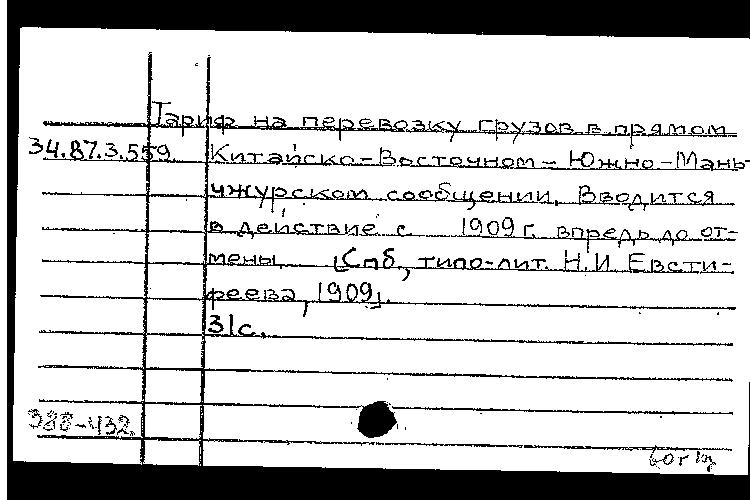 Тариф на перевозку грузов в прямом
34.87.3.559. Китайско-Восточном - Южно-Мань-
чжурском сообщении. Вводится
в действие с 1909 г. впредь до от-
мены. [Спб., типо-лит. Н.И. Евсти-
феева, 1909].
31с.
388-432.